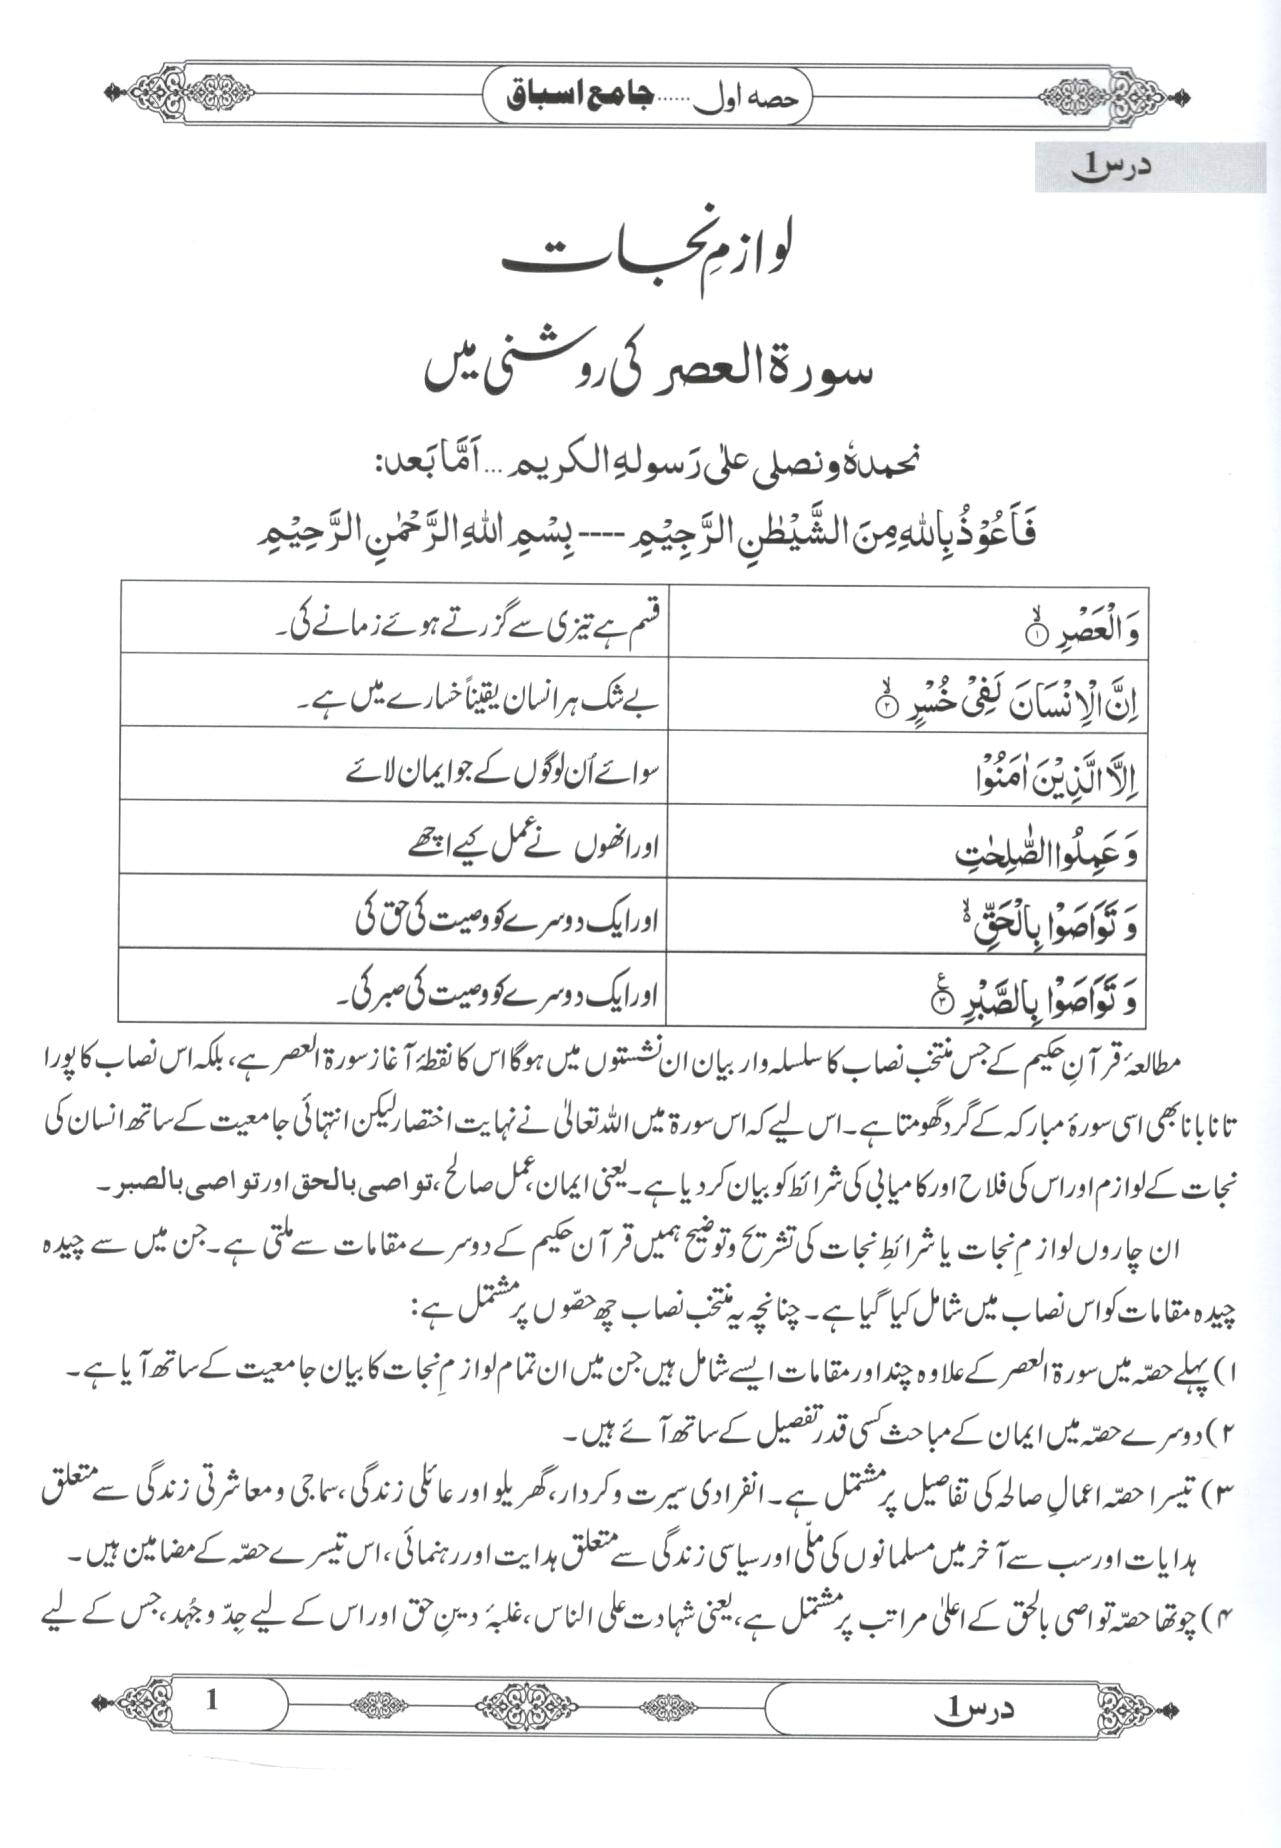 حصہ اول ...... جامع اسباق
درس 1
لوازمِ نجات
سورۃ العصر کی روشنی میں
نحمدہٗ ونصلی علیٰ رَسولہِ الکریم ... اَمَّا بَعد:
فَاَعُوْذُ بِاللّٰهِ مِنَ الشَّيْطٰنِ الرَّجِيْمِ ---- بِسْمِ اللّٰهِ الرَّحْمٰنِ الرَّحِيْمِ
وَالْعَصْرِ ۙ﴿۱﴾ قسم ہے تیزی سے گزرتے ہوئے زمانے کی۔
اِنَّ الْاِنْسَانَ لَفِیْ خُسْرٍ ۙ﴿۲﴾ بے شک ہر انسان یقیناً خسارے میں ہے۔
اِلَّا الَّذِیْنَ اٰمَنُوْا سوائے اُن لوگوں کے جو ایمان لائے
وَ عَمِلُوا الصّٰلِحٰتِ اور انھوں نے عمل کیے اچھے
وَ تَوَاصَوْا بِالْحَقِّ ۙ۬ اور ایک دوسرے کو وصیت کی حق کی
وَ تَوَاصَوْا بِالصَّبْرِ ﴿۳﴾ ع اور ایک دوسرے کو وصیت کی صبر کی۔
مطالعۂ قرآنِ حکیم کے جس منتخب نصاب کا سلسلہ وار بیان ان نشستوں میں ہوگا اس کا نقطۂ آغاز سورۃ العصر ہے، بلکہ اس نصاب کا پورا
تانا بانا بھی اسی سورۂ مبارکہ کے گرد گھومتا ہے۔ اس لیے کہ اس سورۃ میں اللہ تعالیٰ نے نہایت اختصار لیکن انتہائی جامعیت کے ساتھ انسان کی
نجات کے لوازم اور اس کی فلاح اور کامیابی کی شرائط کو بیان کر دیا ہے۔ یعنی ایمان، عمل صالح، تواصی بالحق اور تواصی بالصبر۔
ان چاروں لوازمِ نجات یا شرائطِ نجات کی تشریح و توضیح ہمیں قرآن حکیم کے دوسرے مقامات سے ملتی ہے۔ جن میں سے چیدہ
چیدہ مقامات کو اس نصاب میں شامل کیا گیا ہے۔ چنانچہ یہ منتخب نصاب چھ حصّوں پر مشتمل ہے:
۱) پہلے حصّہ میں سورۃ العصر کے علاوہ چند اور مقامات ایسے شامل ہیں جن میں ان تمام لوازمِ نجات کا بیان جامعیت کے ساتھ آیا ہے۔
۲) دوسرے حصّہ میں ایمان کے مباحث کسی قدر تفصیل کے ساتھ آئے ہیں۔
۳) تیسرا حصّہ اعمالِ صالحہ کی تفاصیل پر مشتمل ہے۔ انفرادی سیرت و کردار، گھریلو اور عائلی زندگی، سماجی و معاشرتی زندگی سے متعلق
ہدایات اور سب سے آخر میں مسلمانوں کی ملّی اور سیاسی زندگی سے متعلق ہدایت اور رہنمائی، اس تیسرے حصّہ کے مضامین ہیں۔
۴) چوتھا حصّہ تواصی بالحق کے اعلیٰ مراتب پر مشتمل ہے، یعنی شہادت علی الناس، غلبۂ دینِ حق اور اس کے لیے جِدّ و جُہد، جس کے لیے
درس 1
1